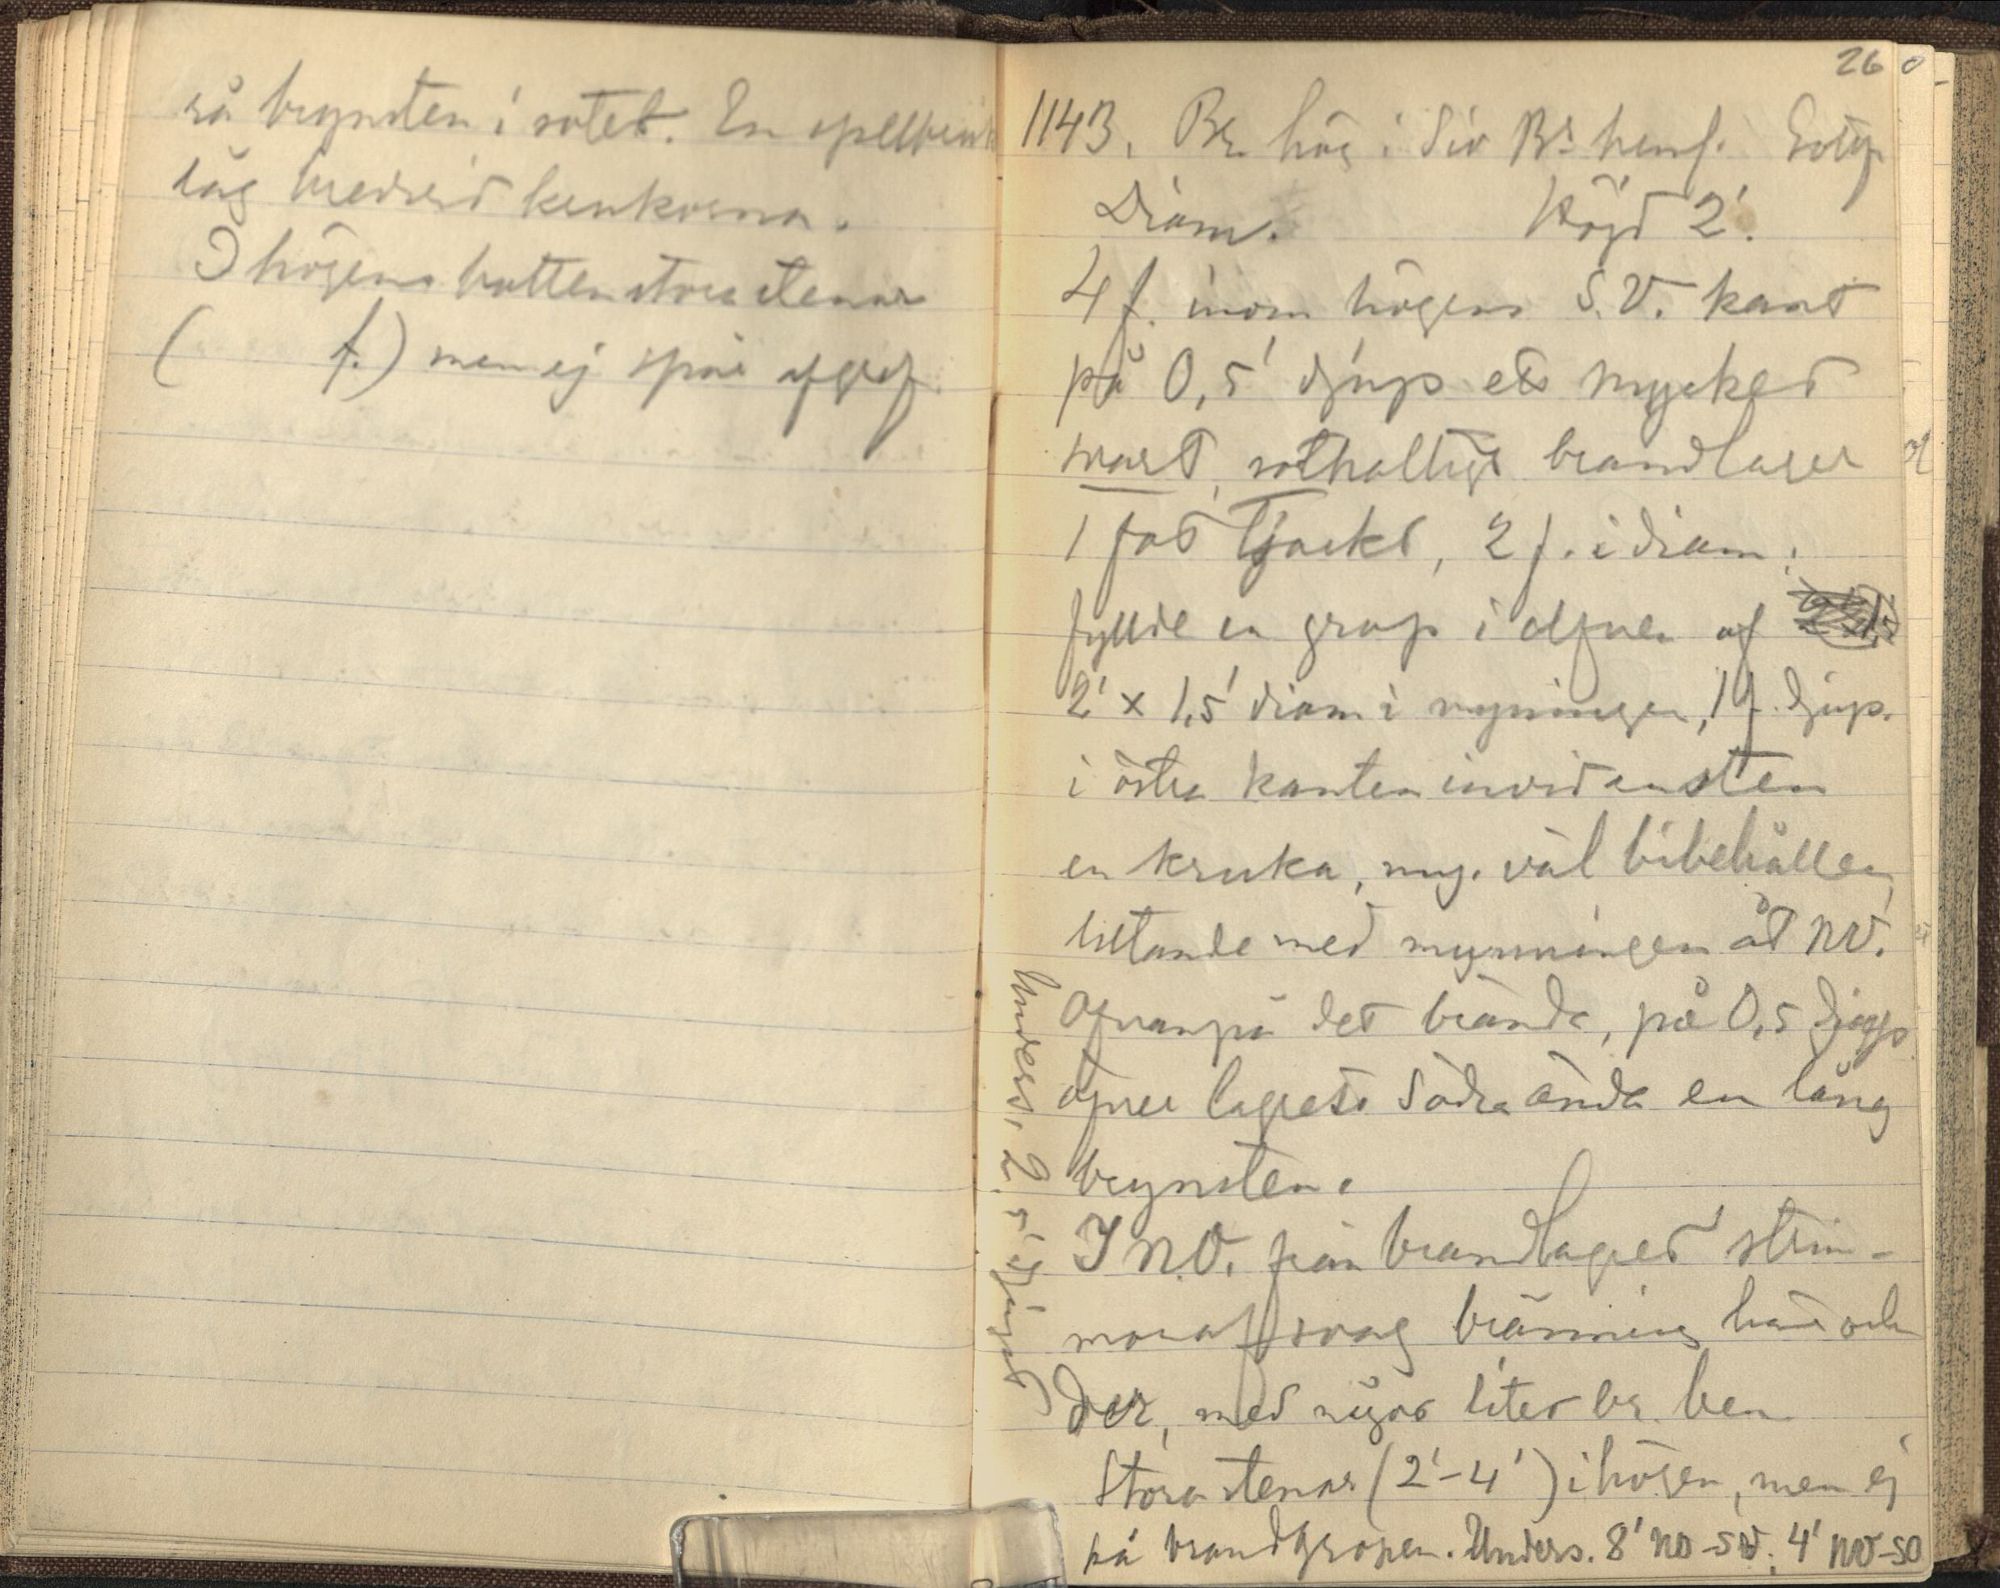 så brynsten i sotet. En spelbricka
låg bredvid krukorna.
I högens botten stora stenar
( f.) men ej spår af graf.
26
1143. Br. hög i Sö. Bs hemf.
Diam. Höjd 2'.
4 f. inom högens S.V. kant
på 0,5' djup ett mycket
svart, sothaltigt brandlager
1 fot tjockt, 2 f. i diam.;
fyllde en grop i elfven af
2' x 1,5' diam i mynningen, 1 f. djup.
i östra kanten invid en sten
en kruka, myc. väl bibehållen,
lutande med mynningen åt NV.
Ofvanpå det brända, på 0,5 djup
öfver lagrets södra ända en lång
brynsten.
I N.O. från brandlagret strim-
mor af svag bränning här och
der, med något litet br. ben.
Stora stenar (2'-4') i högen, men ej
på brandgropen. Unders. 8' NO-SV; 4' NV-SO
Unders. 2,5' djupt